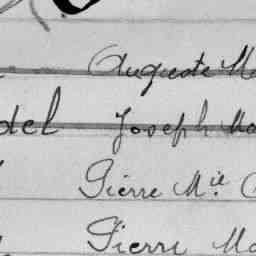 Auguste Ma
del Joseph Ma
Pierre Mie
Pierre Ma